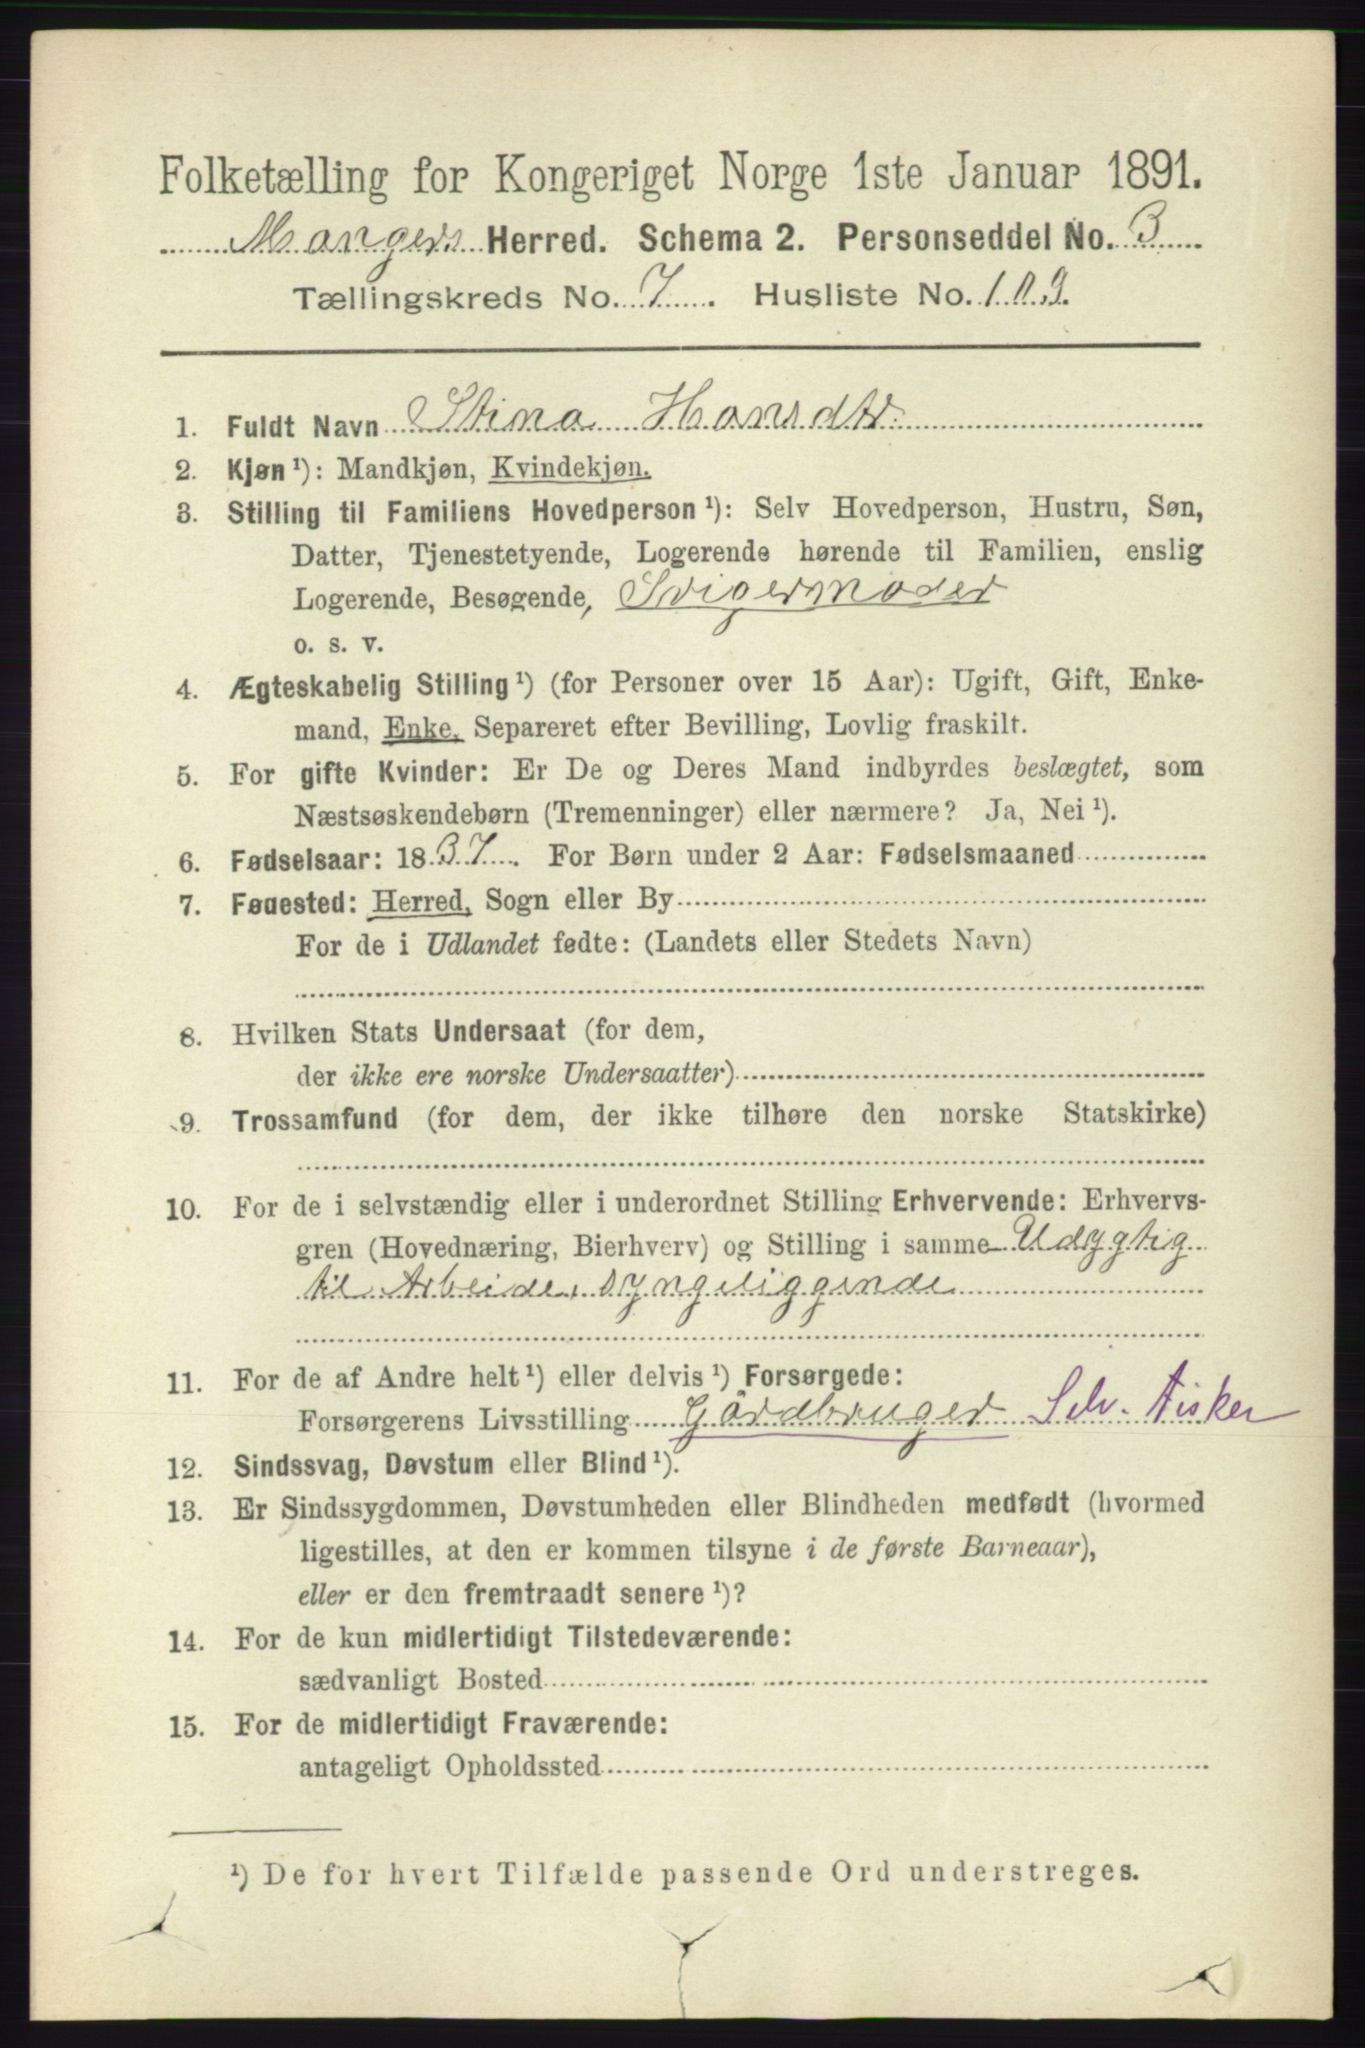 Folketælling for Kongeriget Norge 1ste Januar 1891.
Mangers Herred. Schema 2. Personseddel No. 3
Tællingskreds No. 7. Husliste No. 103.
1. Fuldt Navn Stina Hansdtr.
2. Kjøn ¹): Mandkjøn, Kvindekjøn.
3. Stilling til Familiens Hovedperson ¹): Selv Hovedperson, Hustru, Søn,
Datter, Tjenestetyende, Logerende hørende til Familien, enslig
Logerende, Besøgende, Svigermoder
o. s. v.
4. Ægteskabelig Stilling ¹) (for Personer over 15 Aar): Ugift, Gift, Enke-
mand, Enke, Separeret efter Bevilling, Lovlig fraskilt.
5. For gifte Kvinder: Er De og Deres Mand indbyrdes beslægtet, som
Næstsøskendebørn (Tremenninger) eller nærmere? Ja, Nei ¹).
6. Fødselsaar: 1837. For Børn under 2 Aar: Fødselsmaaned
7. Føuested: Herred, Sogn eller By
For de i Udlandet fødte: (Landets eller Stedets Navn)
8. Hvilken Stats Undersaat (for dem,
der ikke ere norske Undersaatter)
9. Trossamfund (for dem, der ikke tilhøre den norske Statskirke)
10. For de i selvstændig eller i underordnet Stilling Erhvervende: Erhvervs-
gren (Hovednæring, Bierhverv) og Stilling i samme Udygtig
til Arbeide, syngeliggende
11. For de af Andre helt ¹) eller delvis ¹) Forsørgede:
Forsørgerens Livsstilling Gårdbruger Selv. Fisker
12. Sindssvag, Døvstum eller Blind ¹).
13. Er Sindssygdommen, Døvstumheden eller Blindheden medfødt (hvormed
ligestilles, at den er kommen tilsyne i de første Barneaar),
eller er den fremtraadt senere ¹)?
14. For de kun midlertidigt Tilstedeværende:
sædvanligt Bosted
15. For de midlertidigt Fraværende:
antageligt Opholdssted
¹) De for hvert Tilfælde passende Ord understreges.